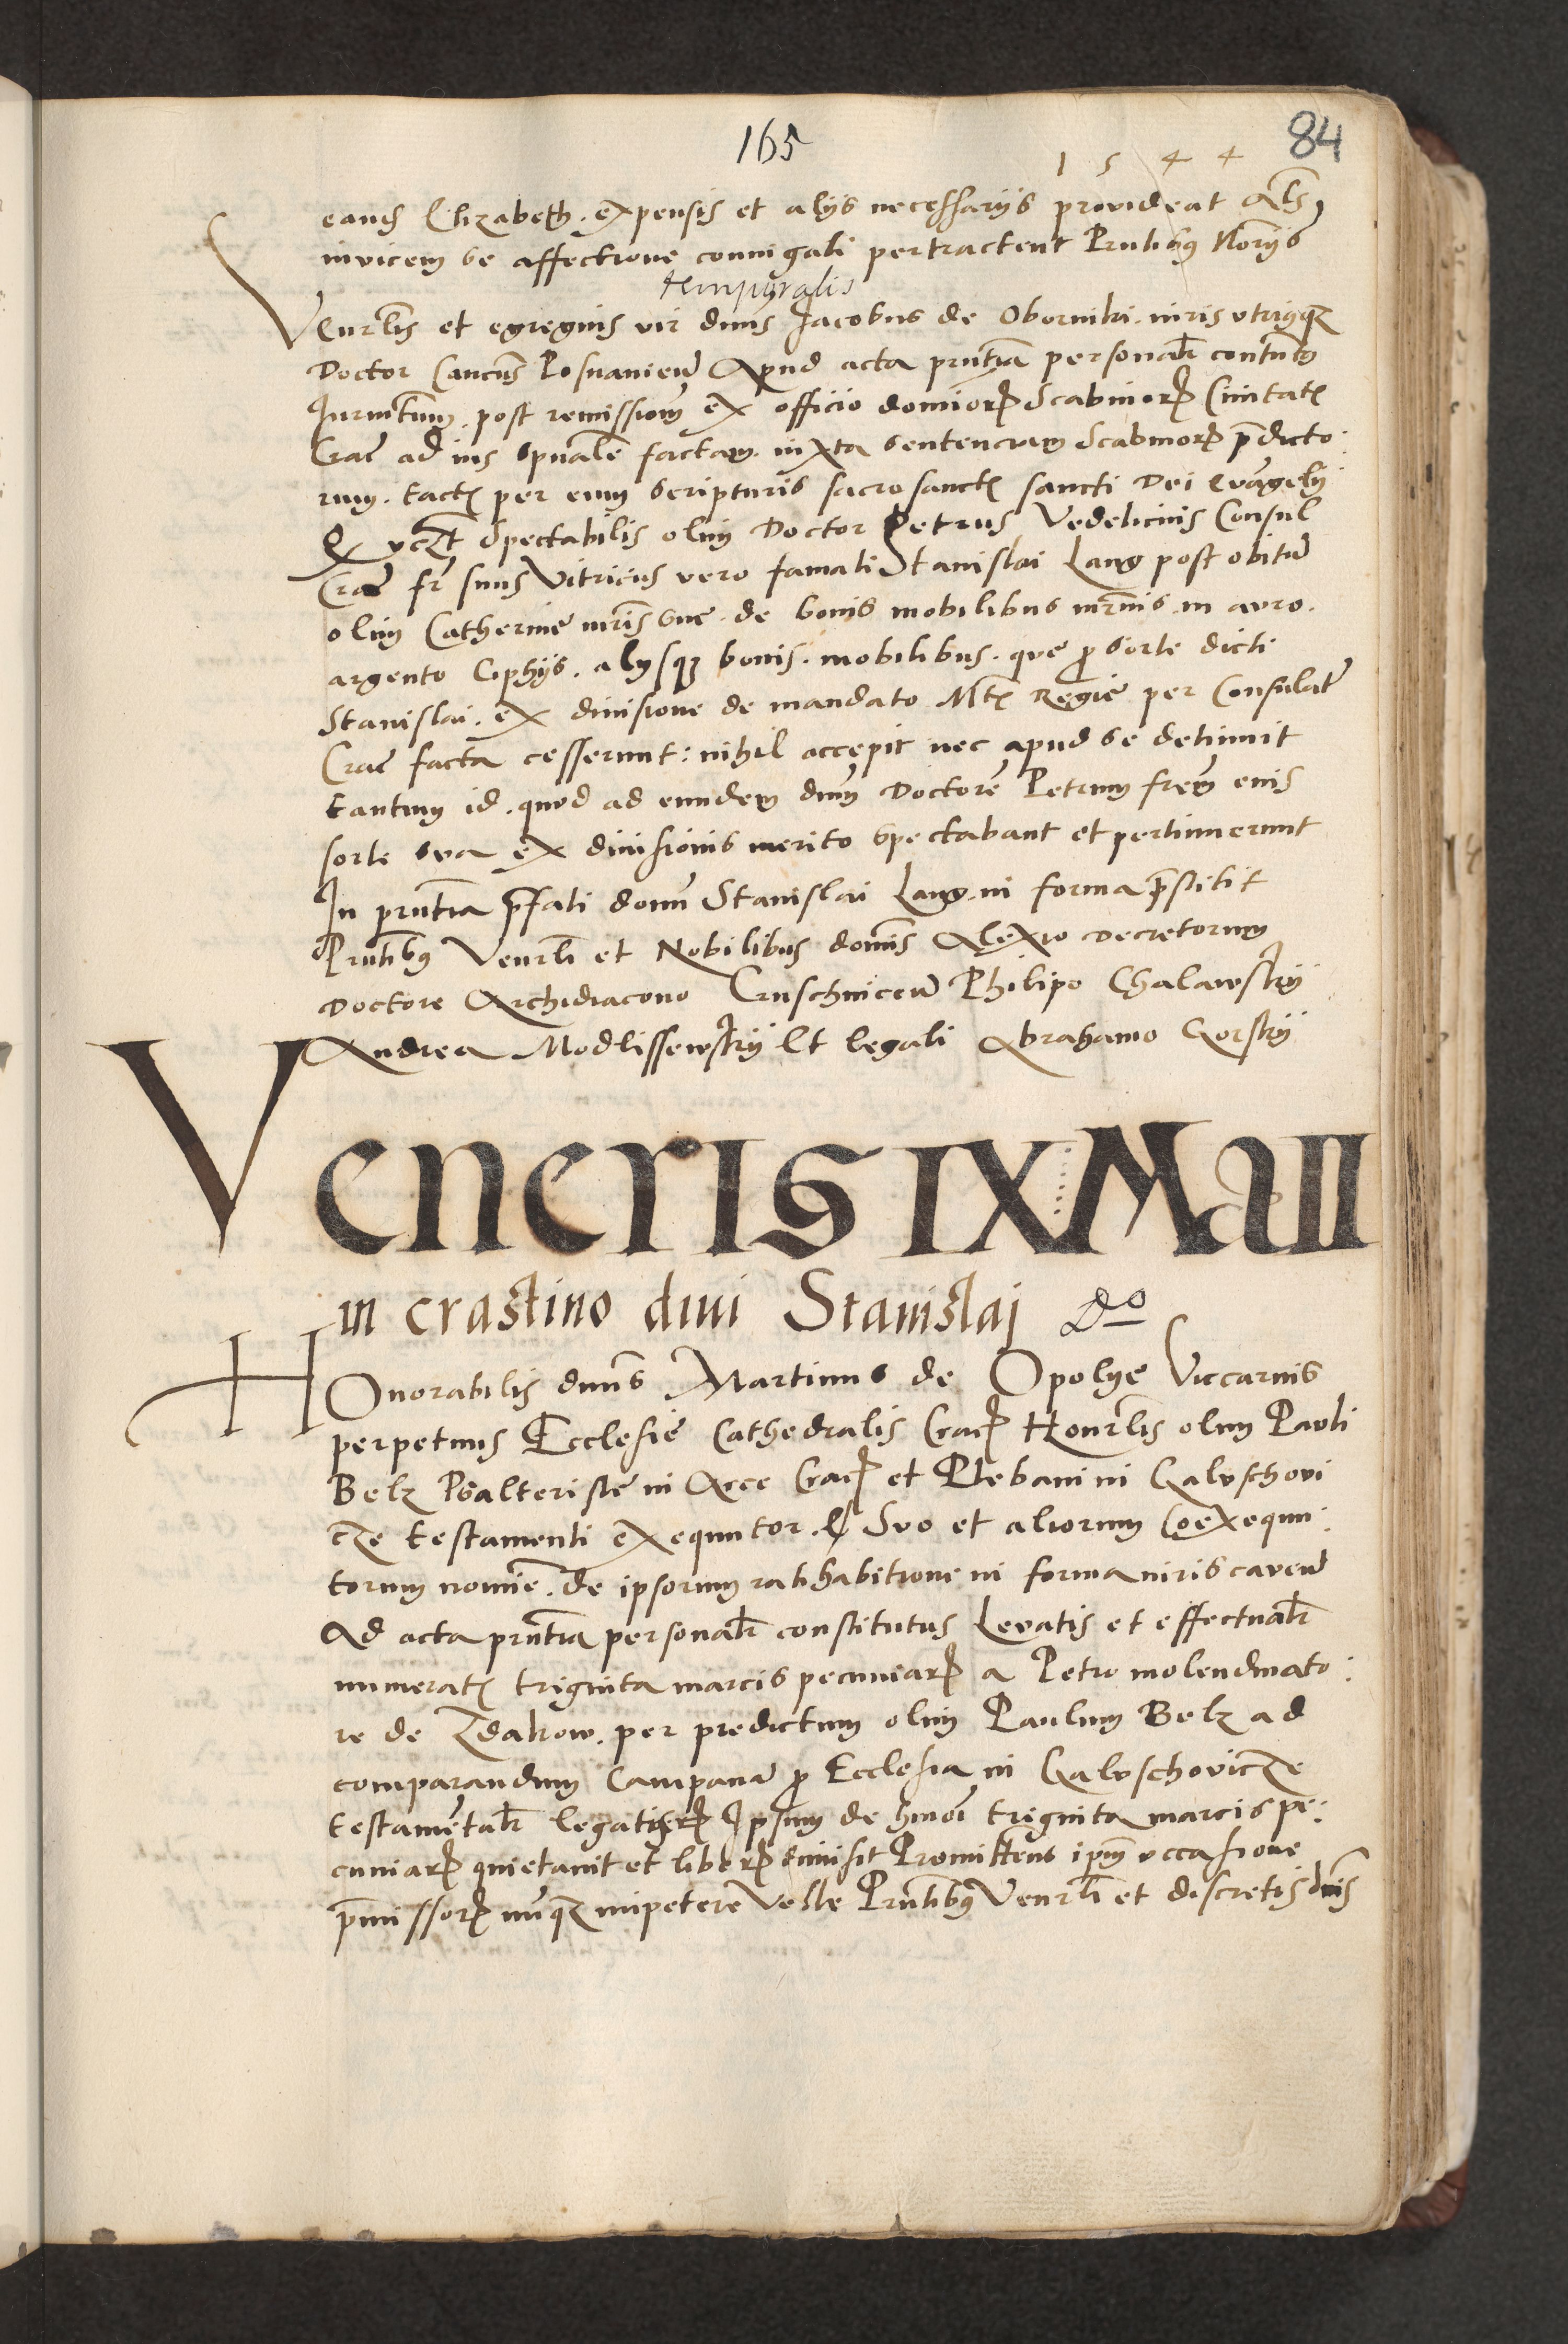 165
84
1 5 4 4
eands Elizabeth. expensis et alijs necessarijs provideat Als
invicem se affectione coniugali pertractent Prntibus Notarijs
temporalis
VEnrlis et egregius vir dnus Jacobus de Oborniki. iuris vtriusqz
Doctor Cancus Posnanien Apud acta prntia personalr contentus
Iuramentum. post remissionem ex officio dominorum Scabinorum Ciuitatis
Crac ad ius spuale factam. iuxta sentenciam Scabinorum predicto:
rum. tactis per eum scripturis sacrosanctis sancti Dei Evangelij
Spectabilis olim Doctor Petrus Vedelicius Consul
Crac fr suus Vitricus vero famati Stanislai Lang post obitum
olim Catherine mris sue. de bonis mobilibus mrnis. in avro.
argento Cyphis. alijsqz bonis. mobilibus. que pro sorte dicti
Stanislai. ex divisione de mandato Mtis Regie per Consulatum
Crac facta cesserunt: nihil accepit nec apud se detinuit
tantum id. quod ad eundem dnum Doctorem Petrum frem eius
sorte sua ex divisionis merito spectabant et pertinuerunt
In prntia prefati domini Stanislai Lang. in forma prestitit
Prntibus Venrli et Nobilibus dominis Alexio Decretorum
Doctore Archidiacono Cruschnicen Philipo Chalawskij
Andrea Modlissewskij Et legali Abrahamo Gorskij
VENERIS IX MAII
in crastino diui Stanislaj
HOnorabilis dnus Martinus de Opolye Viccarius
perpetuus Ecclesie Cathedralis Crac Honrlis olim Pauli
Belz Psalteriste in Arce Crac et Plebani in Galvschovi
cze testamenti exequutor. Suo et aliorum Coexequu:
torum nomine. de ipsorum ratihabitione in forma iuris caven
Ad acta prntia personalr constitutus Levatis et effectualr
numeratis triginta marcis pecuniarum a Petro molendinato:
re de Zdakow. per predictum olim Paulum Belz ad
comparandum Campanam pro Ecclesia in Galvschovicze
testamentalr legatis Ipsum de hmoi triginta marcis pe:
cuniarum quietavit et liberum dimisit Promittens ipm occasione
premissorum nunqz impetere velle Prntibus Venrli et discretis dnis